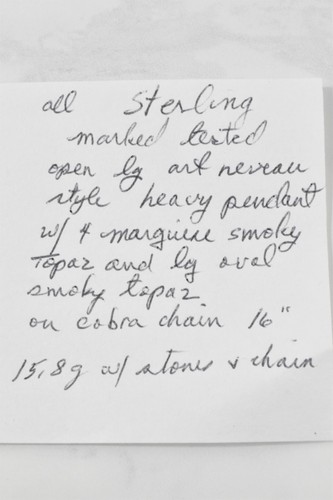 all Sterling
marked tested
open lg art neveau
style heavy pendant
w/ 4 marquise smoky
topaz and lg oval
smoky topaz.
on cobra chain 16"
15.8g w/ stones & chain